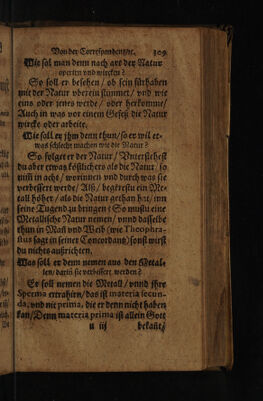 Von der Correspondentz/ꝛc. 309
Wie sol man denn nach art der Natur
operirn vnd wircken?
So soll er besehen/ ob sein fürhaben
mit der Natur vbereinstimmet/ vnd wie
eins oder jenes werde/ oder herkomme/
Auch in was vor einem Gesetz die Natur
wircke oder arbeite.
Wie soll er jhm denn thun/ so er wil et-
was schlecht machen wie die Natur?
So folget er der Natur/ Vnterstehest
du aber etwas köstlichers als die Natur/ so
muß in acht/ worinnen vnd durch was sie
verbessert werde/ Alß/ begerestu ein Me-
tall höher/ als die Natur gethan hat/ inn
seine Tugend zu bringen: So mustu eine
Metallische Natur nemen/ vnnd dasselbe
thun in Mañ vnd Weib (wie Theophra-
stus sagt in seiner Concordantz) sonst wirst
du nichts außrichten.
Was soll er denn nemen aus den Metal-
len/ dariñ sie verbessert werden?
Er soll nemen die Metall/ vnnd jhre
Sperma extrahirn/ das ist materia secun-
da, vnd nit prima, die er denn nicht haben
kan/ Denn materia prima ist allein Gott
u iij bekañt/